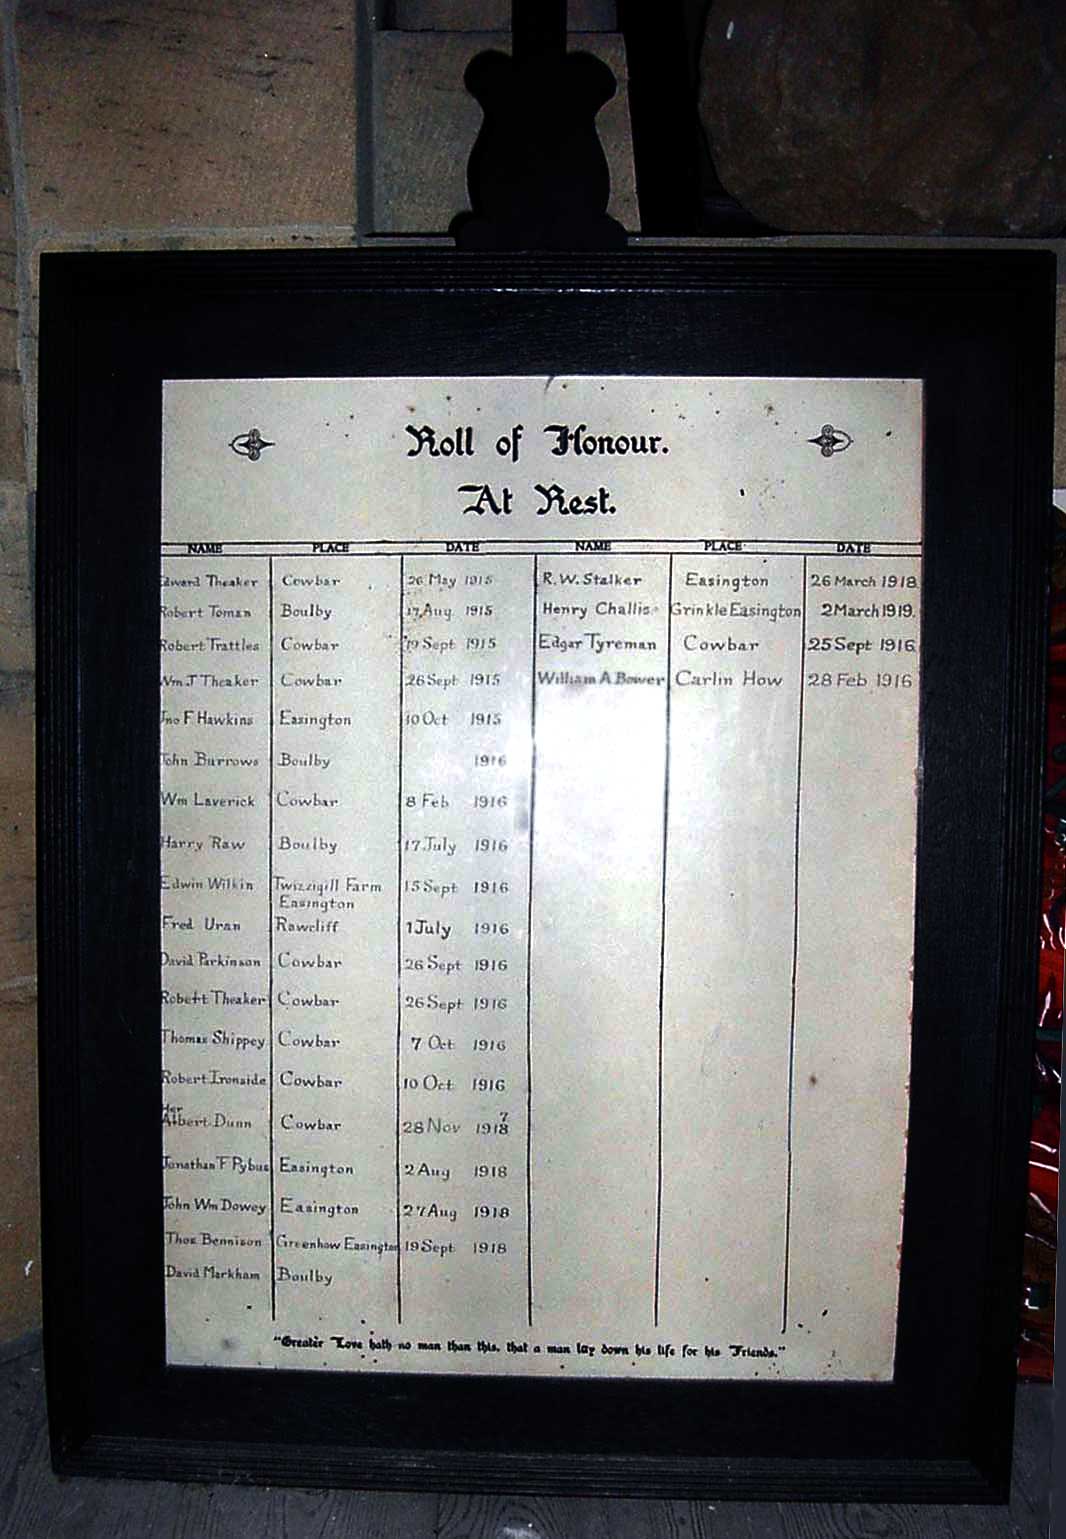 Roll of Honour.
At Rest.
NAME PLACE DATE NAME PLACE DATE
Edward Theaker Cowbar 26 May 1915 R. W. Stalker Easington 26 March 1918
Robert Toman Boulby 17 Aug 1915 Henry Challis Grinkle Easington 2 March 1919.
Robert Trattles Cowbar 19 Sept 1915 Edgar Tyreman Cowbar 25 Sept 1916
Wm J Theaker Cowbar 26 Sept 1915 William A Bower Carlin How 28 Feb 1916
Jno F Hawkins Easington 10 Oct 1915
John Burrows Boulby 1916
Wm Laverick Cowbar 8 Feb 1916
Harry Raw Boulby 17 July 1916
Edwin Wilkin Twizzigill Farm 15 Sept 1916
Easington
Fred Uran Rawcliff 1 July 1916
David Parkinson Cowbar 26 Sept 1916
Robert Theaker Cowbar 26 Sept 1916
Thomas Shippey Cowbar 7 Oct 1916
Robert Ironside Cowbar 10 Oct 1916
Her 7
Albert Dunn Cowbar 28 Nov 1918
Jonathan F Pybus Easington 2 Aug 1918
John Wm Dowey Easington 27 Aug 1918
Thos Bennison Greenhow Easington 19 Sept 1918
David Markham Boulby
"Greater Love hath no man than this, that a man lay down his life for his Friends."